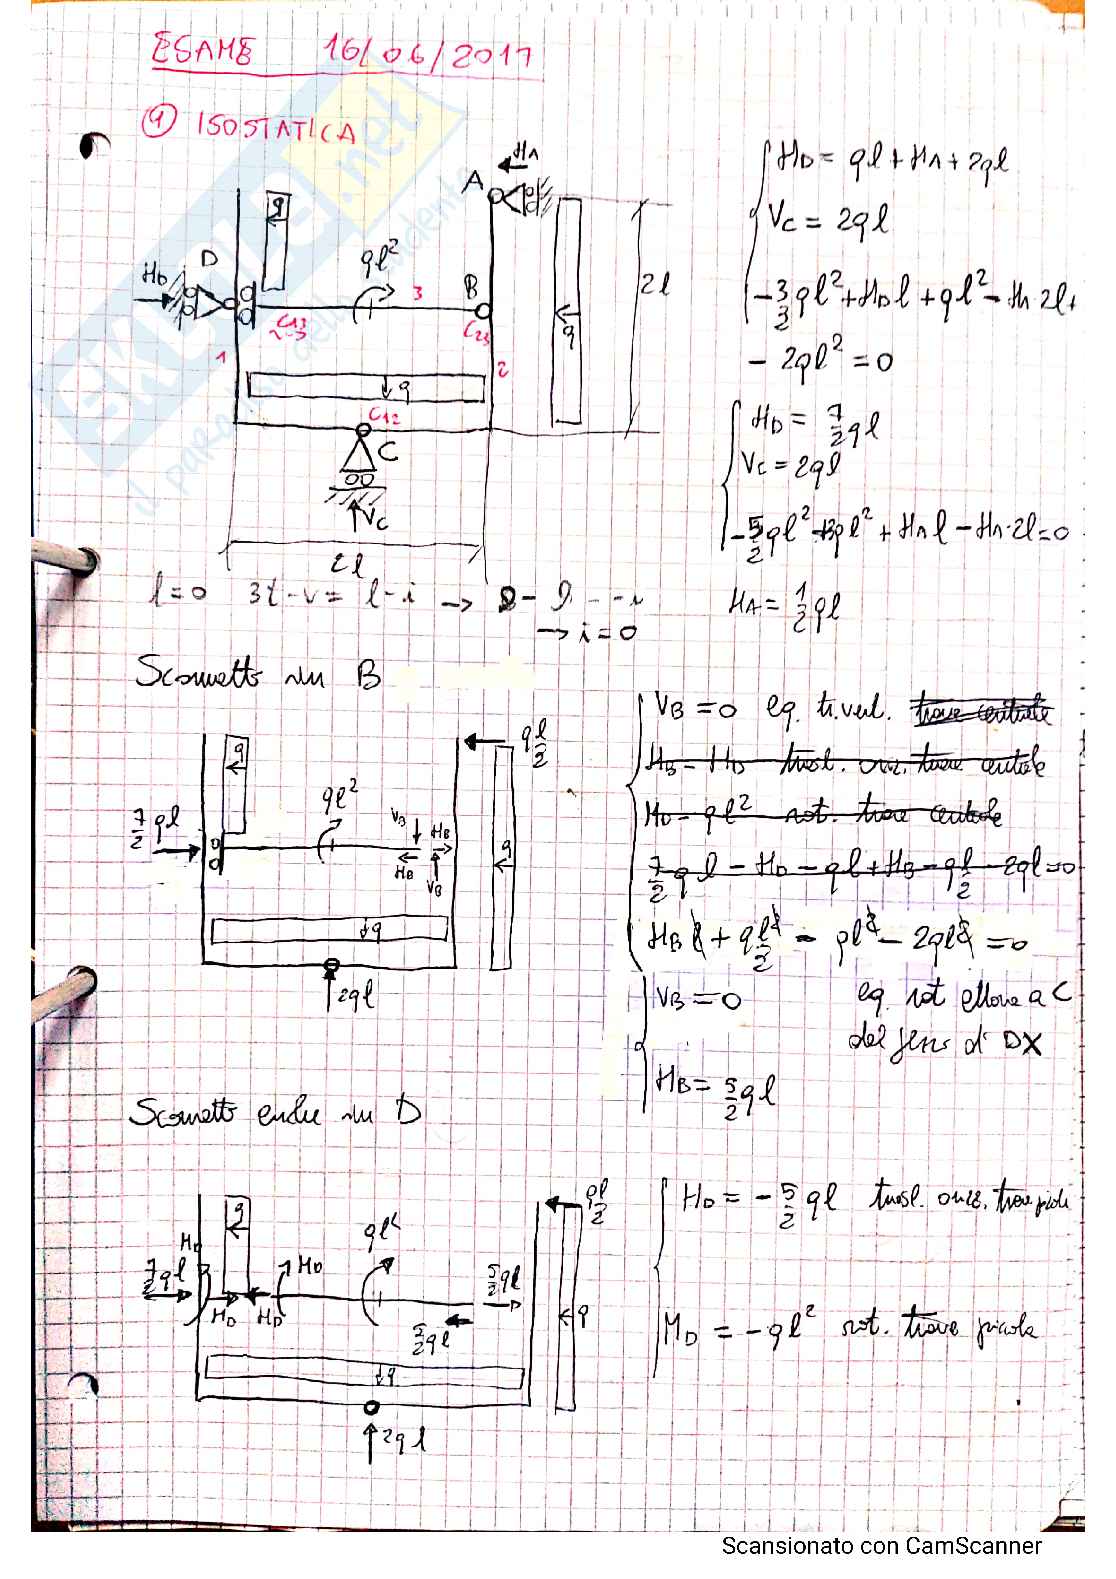 ESAME 16/06/2017
① ISOSTATICA
H_A
A
q
D
H_D
ql²
3
B
2l
C₁₃
C₂₃
q
1
2
q
C₁₂
C
V_C
2l
H_D = ql + H_A + 2ql
V_C = 2ql
-3/2 ql² + H_D l + ql² - H_A 2l +
- 2ql² = 0
H_D = 7/2 ql
V_C = 2ql
+ H_A l - H_A · 2l = 0
H_A = 1/2 ql
l = 0 3t - v = l - i →
→ i = 0
Sconnetto in B
q
ql/2
7/2 ql
ql²
V_B
H_B
H_B
V_B
q
q
2ql
V_B = 0 eq. tr. vert. trave centrale
H_B = H_D trasl. orz. trave centrale
ql² rot. trave centrale
7/2 ql - H_D - ql + H_B - ql/2 - 2ql = 0
H_B l + ql²/2 - ql² - 2ql² = 0
V_B = 0 eq. rot attorno a C
del di DX
H_B = 5/2 ql
Sconnetto anche in D
q
ql/2
M_D
7/2 ql
M_D
ql²
5/2 ql
H_D
H_D
5/2 ql
q
q
2ql
H_D = - 5/2 ql trasl. orizz. trave
M_D = - ql² rot. trave piccola
Scansionato con CamScanner